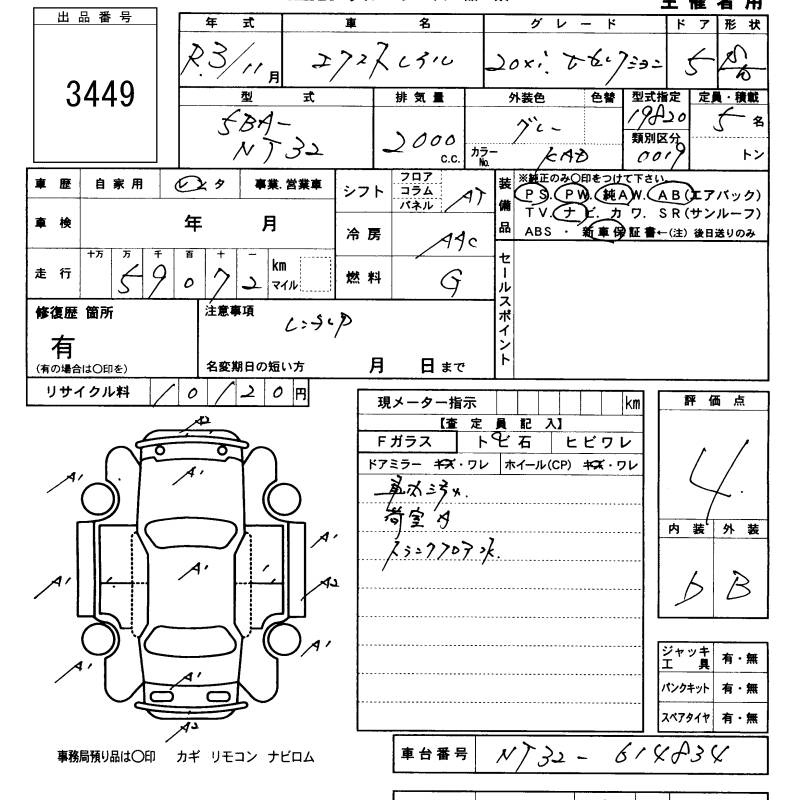 主催者用
出品番号
3449
年式 車名 グレード ドア 形状
R.3/11月 エクストレイル 20Xi. 5
型式 排気量 外装色 色替 型式指定 定員・積載
5BA-NT32 2000 C.C. グレー 19820 5名
カラーNo. KAD 類別区分 0019 トン
車歴 自家用 レンタ 事業.営業車
車検 年 月
走行 十万 万 千 百 十 一
59072 km マイル
シフト フロア コラム パネル AT
冷房 AAC
燃料 G
装備品
※純正のみ〇印をつけて下さい。
PS. PW. 純AW. AB(エアバック)
TV. ナビ. カワ. SR(サンルーフ)
ABS・新車保証書←(注)後日送りのみ
セールスポイント
修復歴 箇所
有
(有の場合は〇印を)
注意事項
レンタUP
名変期日の短い方 月 日まで
リサイクル料 10120円
現メーター指示 km
【査定員記入】
Fガラス トビ石 ヒビワレ
ドアミラー キズ・ワレ ホイール(CP) キズ・ワレ
車内ヨゴレ.
荷室A
評価点
4
内装 外装
b B
A2
A1 A1 A1
A1
A1 A1 A2
A1 A1
A1
A2
ジャッキ工具 有・無
パンクキット 有・無
スペアタイヤ 有・無
事務局預り品は〇印 カギ リモコン ナビロム
車台番号 NT32-614834